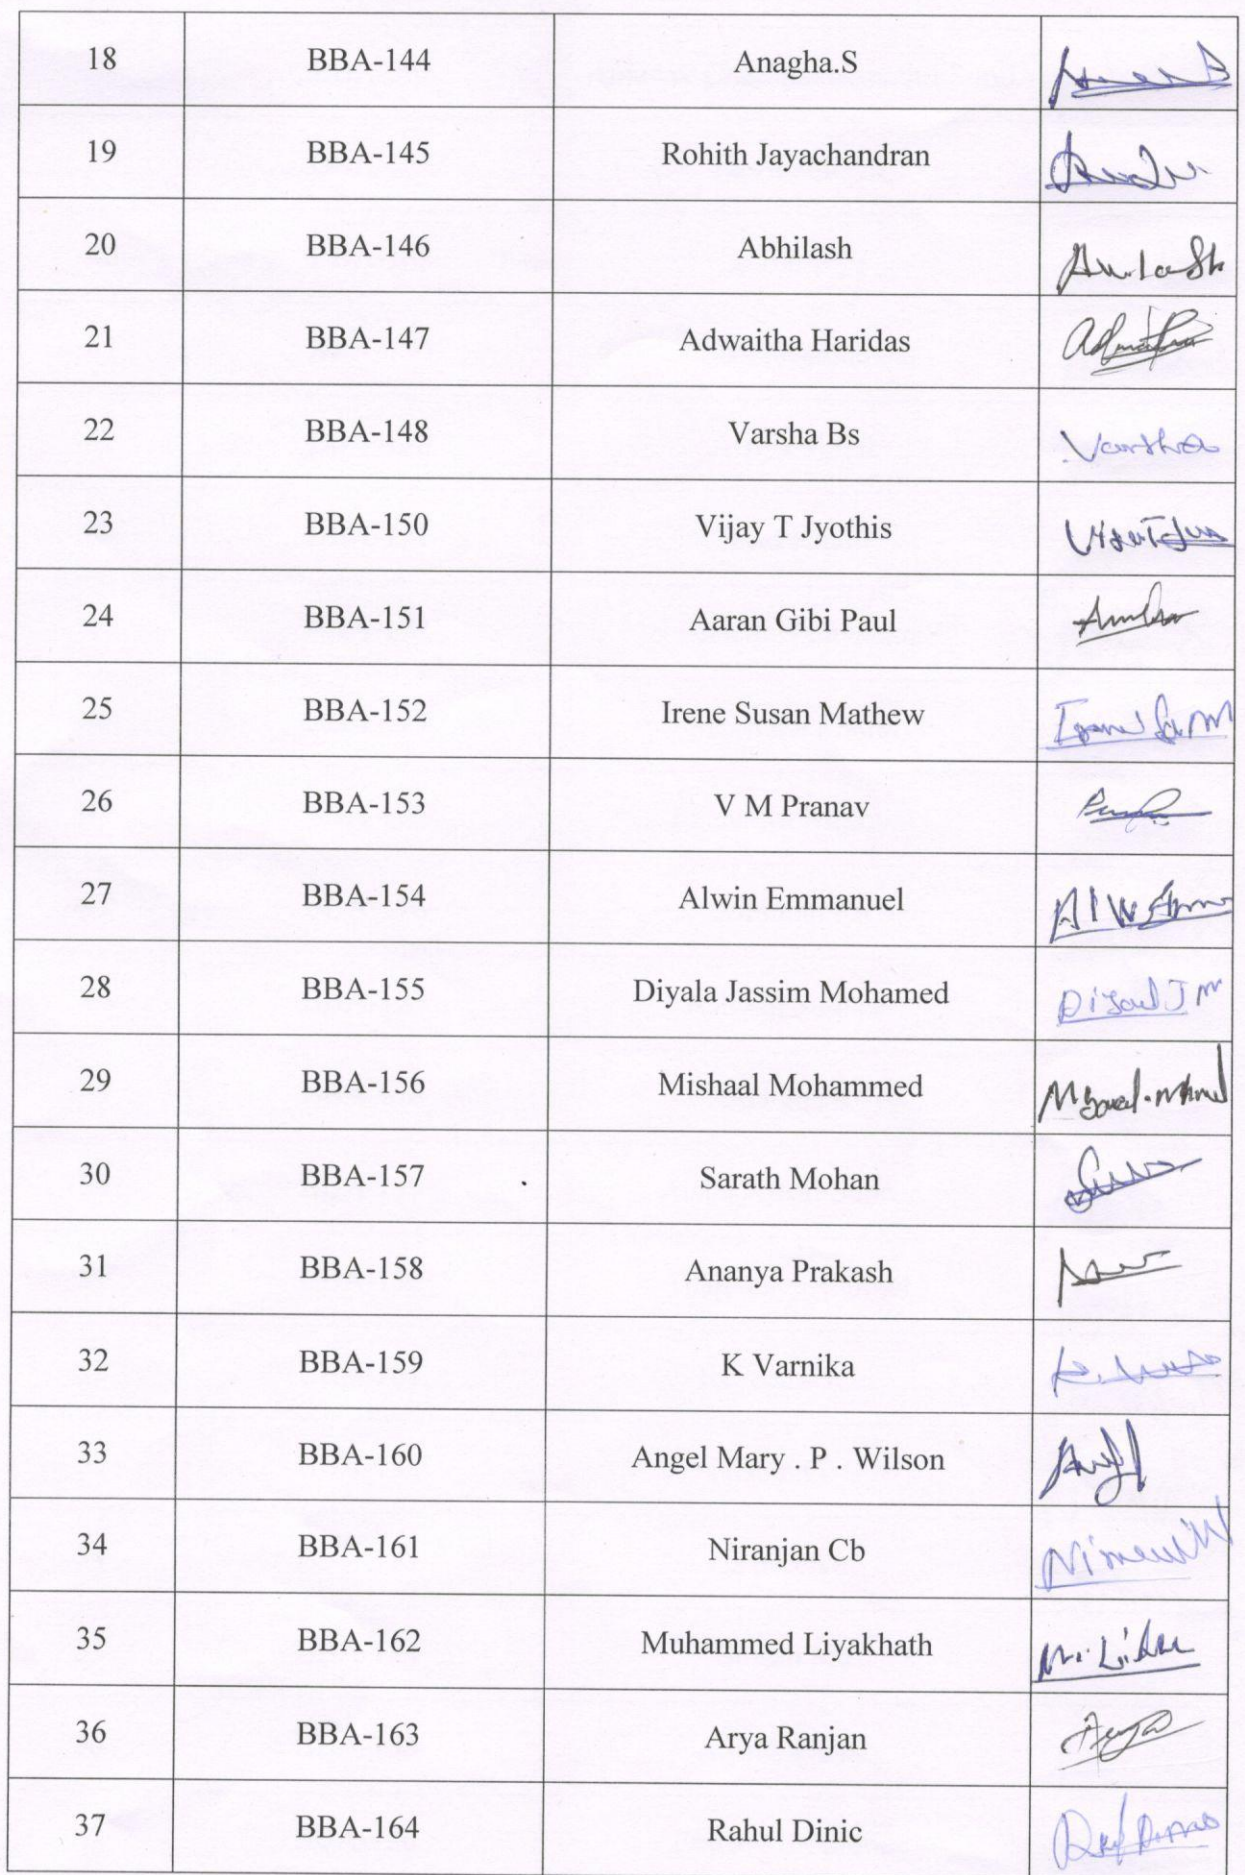 18 BBA-144 Anagha.S
19 BBA-145 Rohith Jayachandran
20 BBA-146 Abhilash
21 BBA-147 Adwaitha Haridas
22 BBA-148 Varsha Bs Varsha
23 BBA-150 Vijay T Jyothis
24 BBA-151 Aaran Gibi Paul
25 BBA-152 Irene Susan Mathew
26 BBA-153 V M Pranav
27 BBA-154 Alwin Emmanuel
28 BBA-155 Diyala Jassim Mohamed
29 BBA-156 Mishaal Mohammed
30 BBA-157 Sarath Mohan
31 BBA-158 Ananya Prakash
32 BBA-159 K Varnika
33 BBA-160 Angel Mary . P . Wilson
34 BBA-161 Niranjan Cb
35 BBA-162 Muhammed Liyakhath
36 BBA-163 Arya Ranjan Arya
37 BBA-164 Rahul Dinic